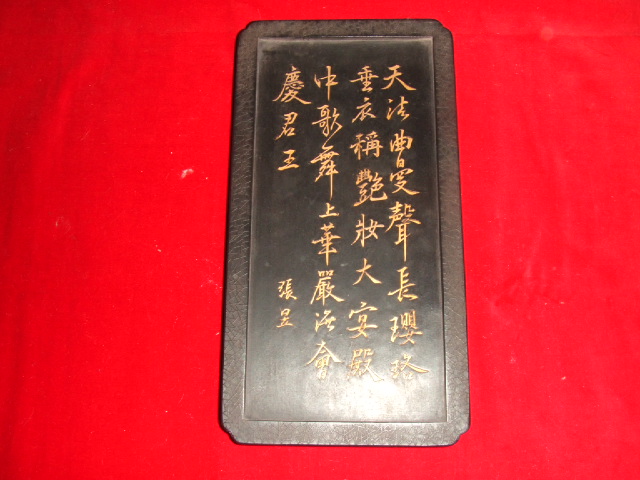 天法曲曼聲長瓔珞
垂衣稱豔妝大宴殿
中歌舞上華嚴海會
慶君王
張昱